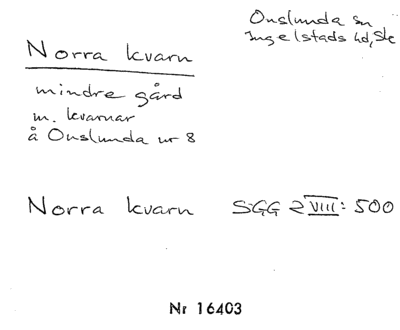 Onslunda sn
Ingelstads hd, Sk
Norra kvarn
mindre gård
m. kvarnar
å Onslunda nr 8
Norra kvarn SGG 2 VIII: 500
Nr 16403